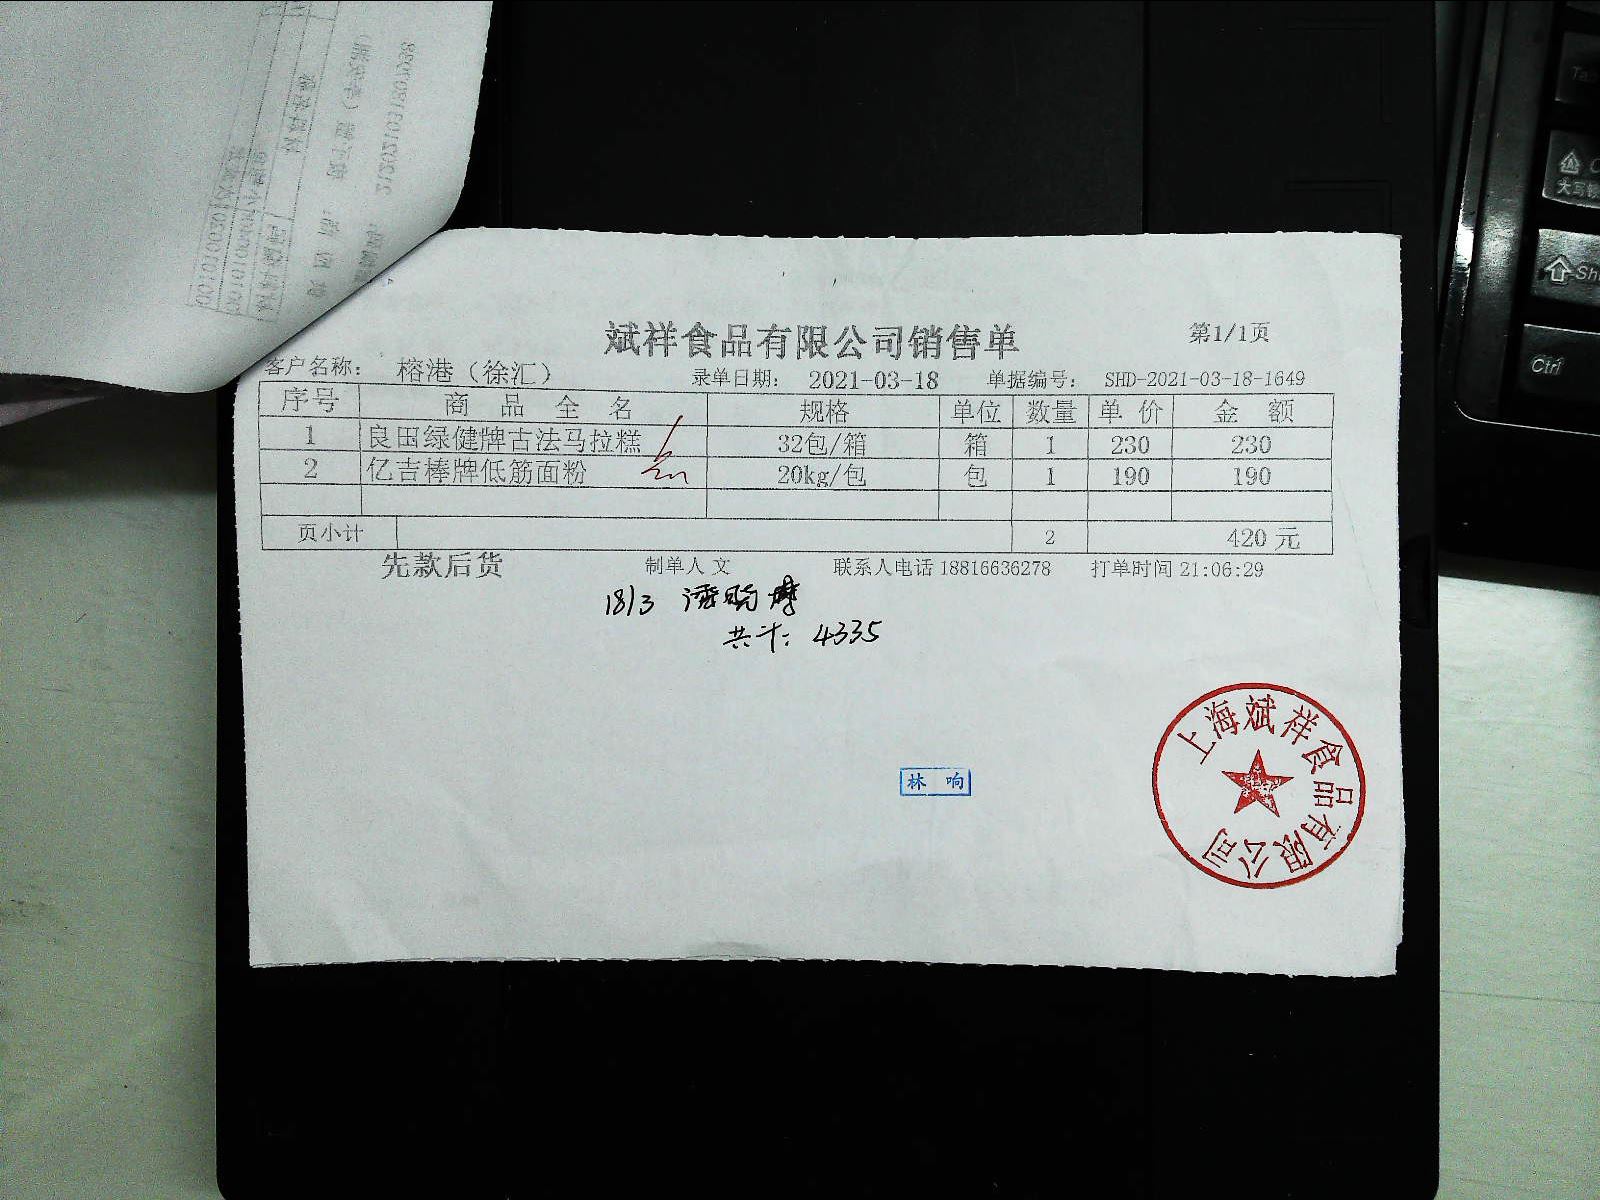 斌祥食品有限公司销售单 第1/1页
客户名称： 榕港（徐汇） 录单日期： 2021-03-18 单据编号： SHD-2021-03-18-1649
序号 商品全名 规格 单位 数量 单价 金额
1 良田绿健牌古法马拉糕 32包/箱 箱 1 230 230
2 亿吉棒牌低筋面粉 20kg/包 包 1 190 190
页小计 2 420 元
先款后货 制单人 文 联系人电话 18816636278 打单时间 21:06:29
18/3
共计: 4335
林响
上海斌祥食品有限公司
大写锁
Ctrl